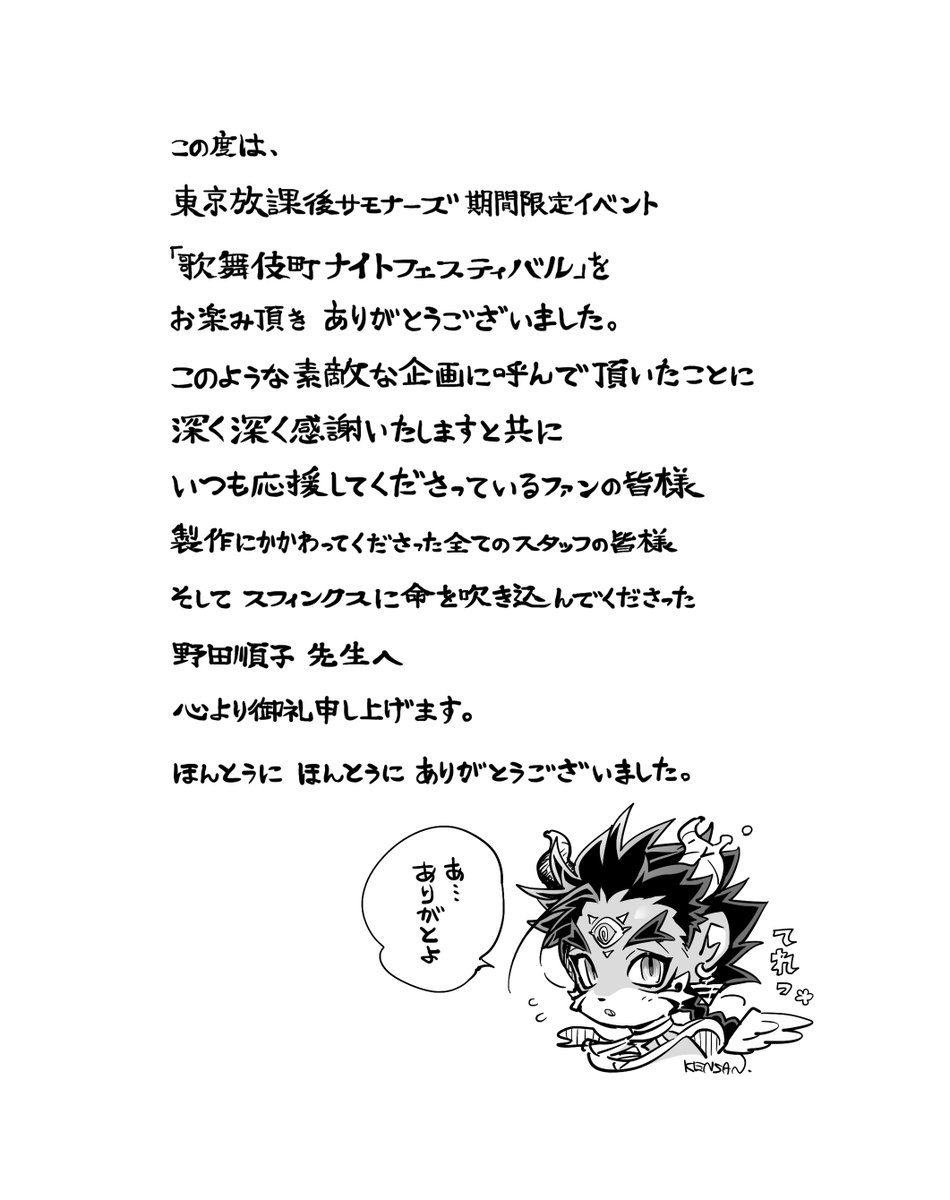 この度は、
東京放課後サモナーズ 期間限定イベント
「歌舞伎町ナイトフェスティバル」を
お楽み頂き ありがとうございました。
このような素敵な企画に呼んで頂いたことに
深く深く感謝いたしますと共に
いつも応援してくださっているファンの皆様
製作にかかわってくださった全てのスタッフの皆様
そして スフィンクスに命を吹き込んでくださった
野田順子 先生へ
心より御礼申し上げます。
ほんとうに ほんとうに ありがとうございました。
あ…
ありがとよ
てれっ
KENSAN.